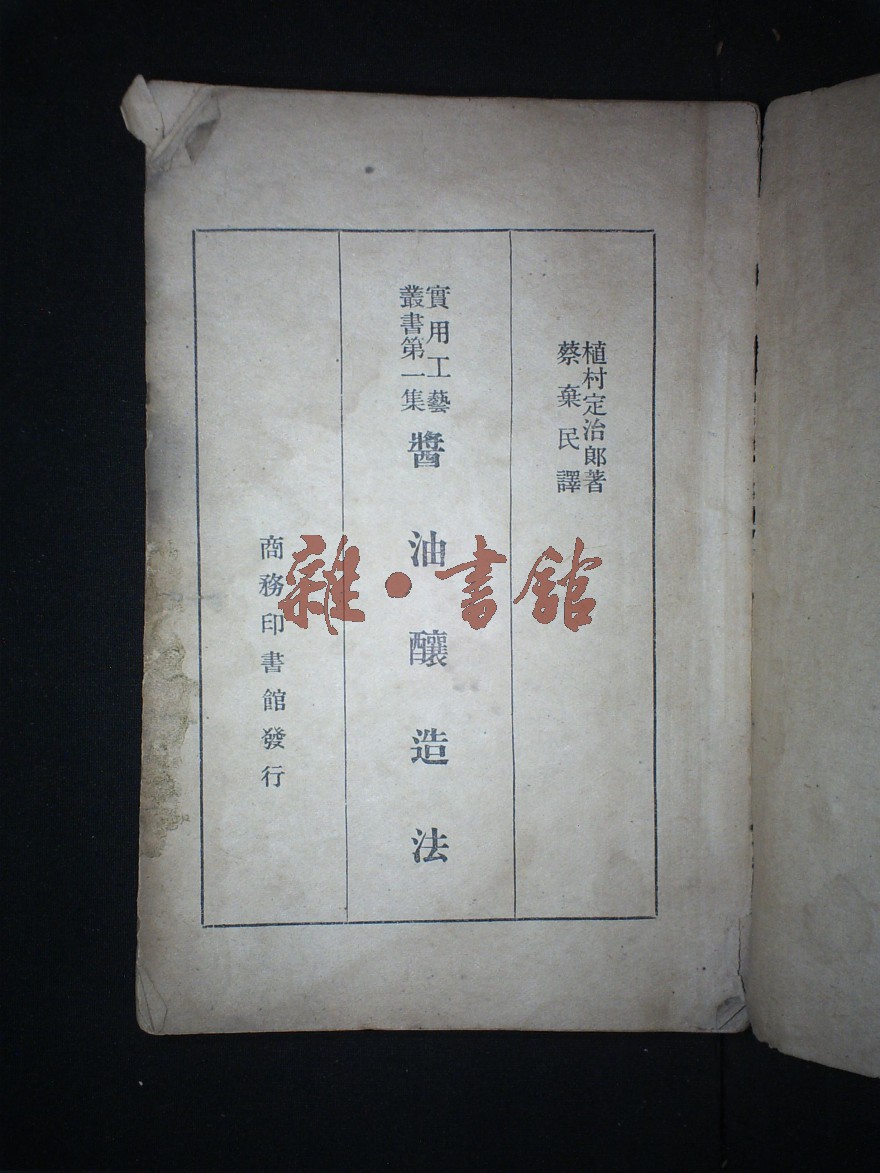 植村定治郎著
蔡棄民譯
實用工藝
叢書第一集
醬油釀造法
商務印書館發行
雜·書館